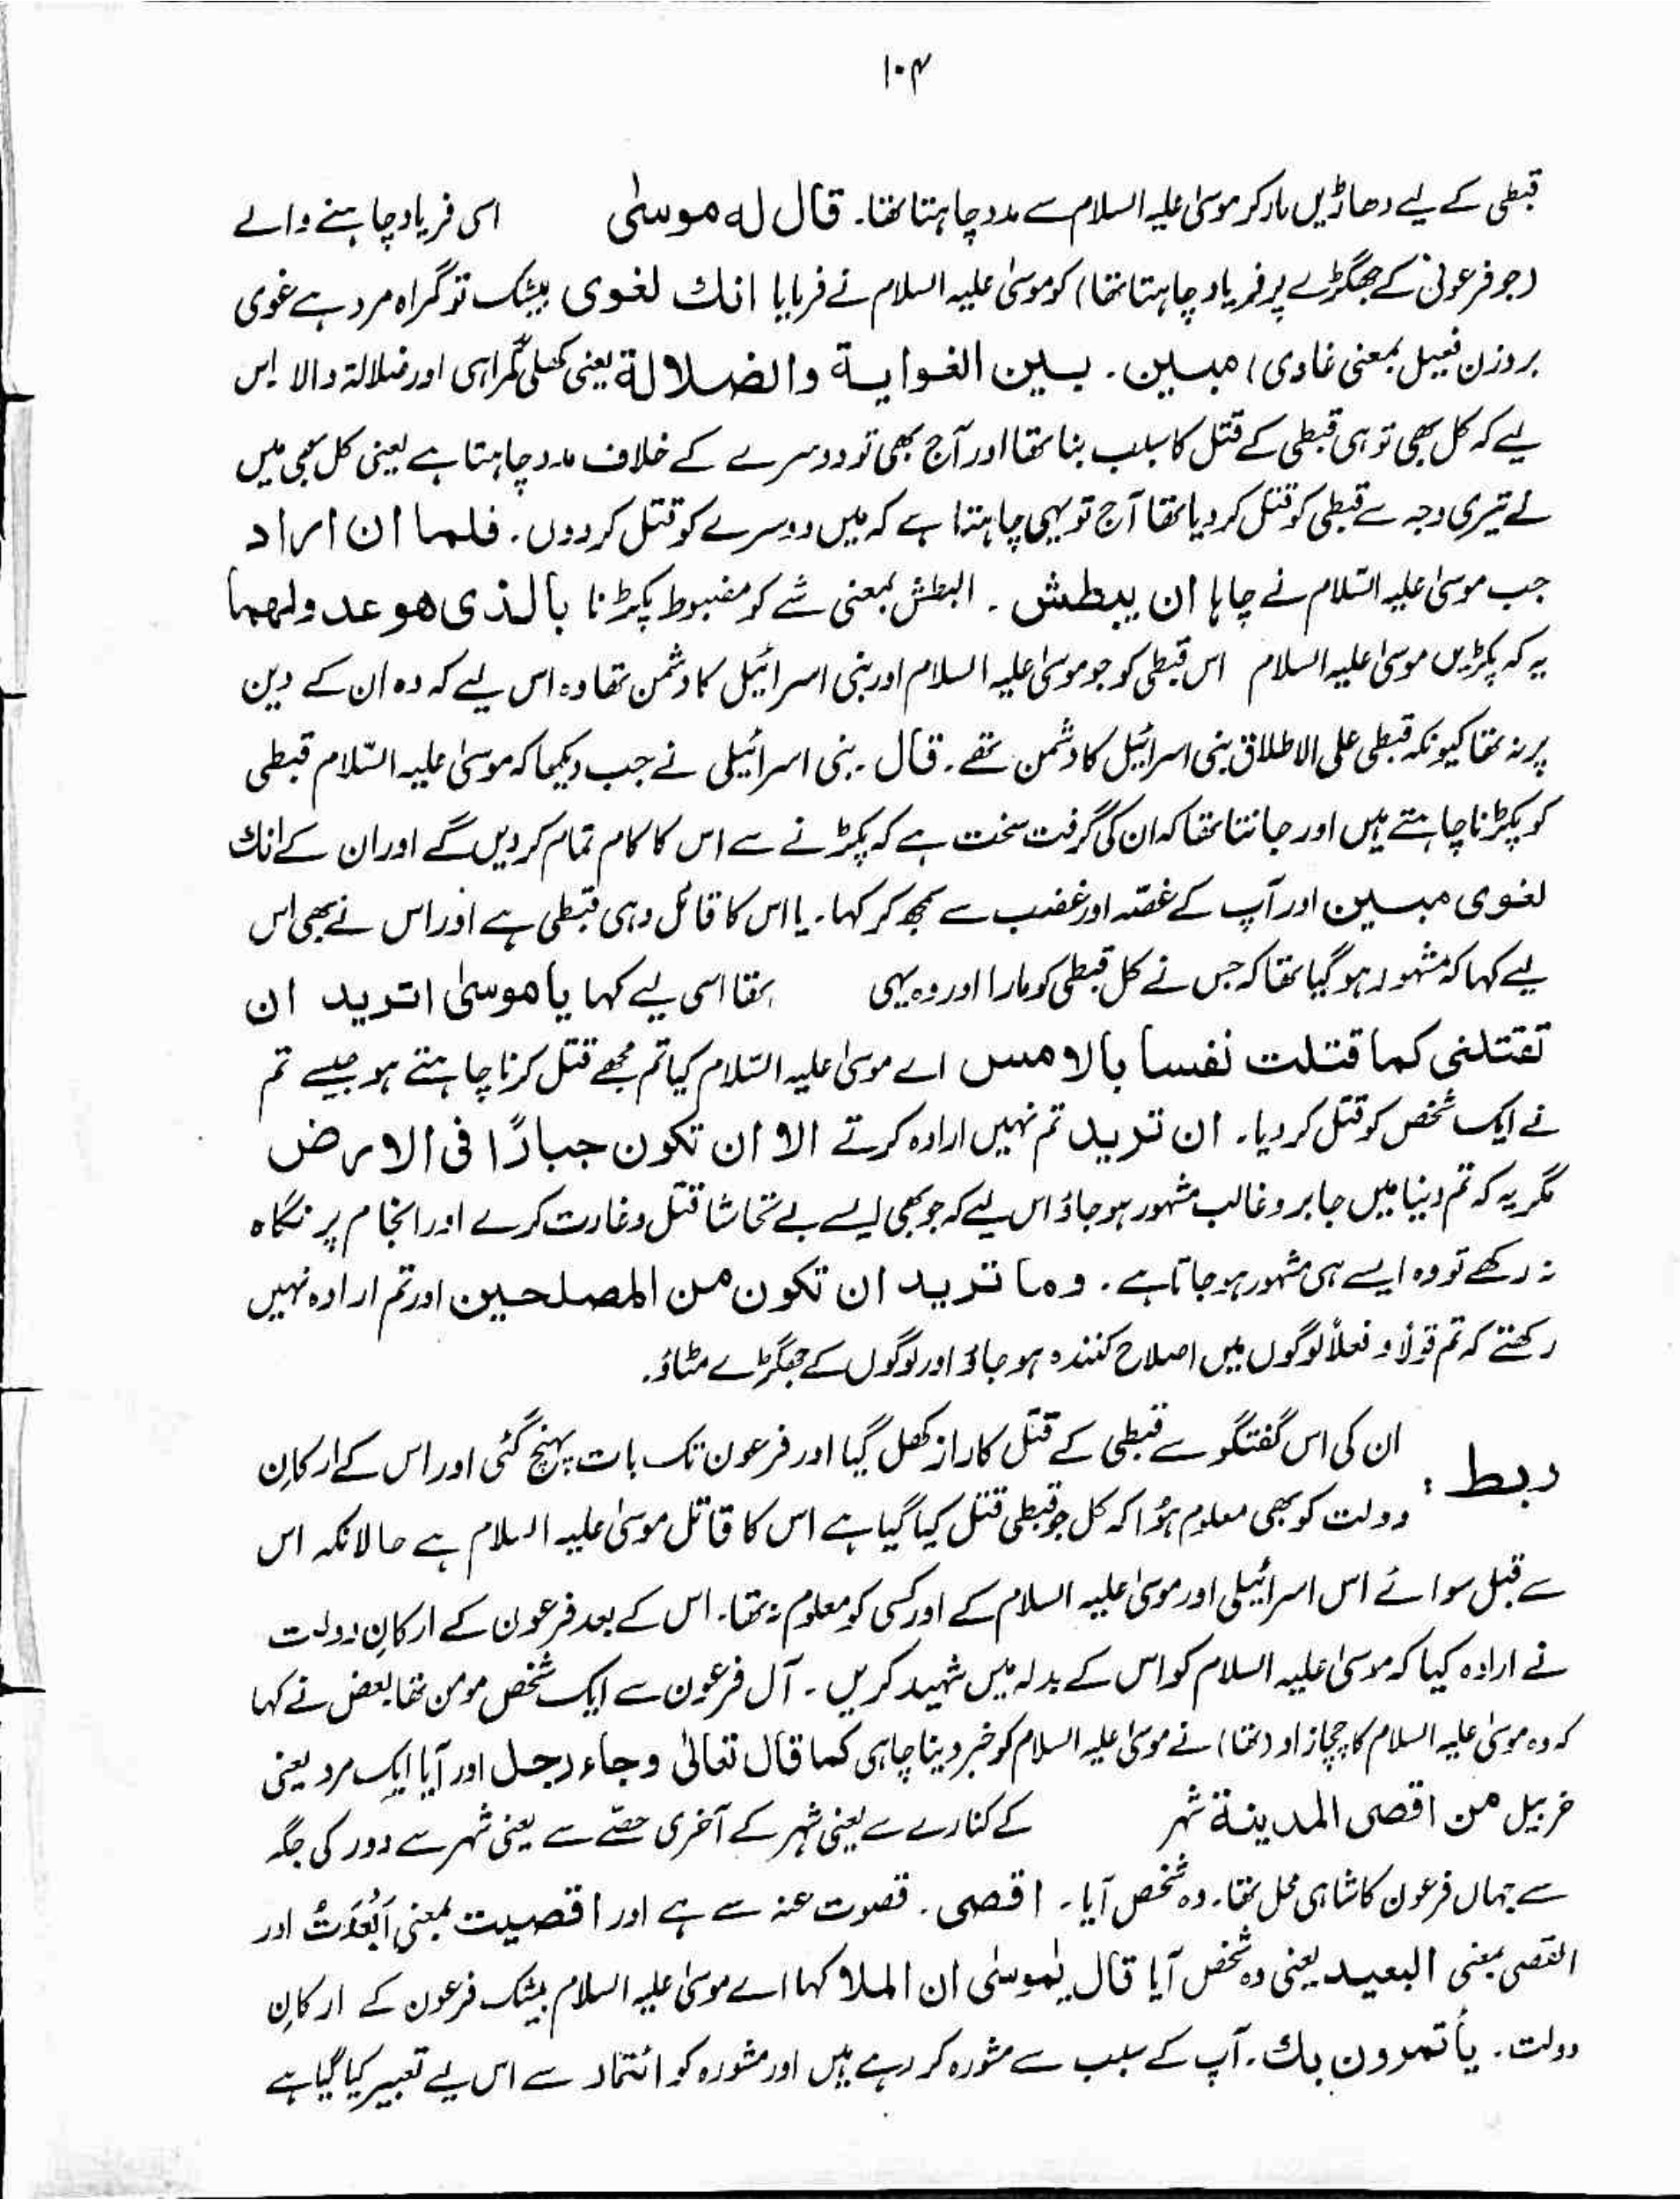 ۱۰۴
قبطی کے لیے دھاڑیں مار کر موسیٰ علیہ السلام سے مدد چاہتا تھا۔ قال له موسٰی اسی فریاد چاہنے والے
(جو فرعونی کے جھگڑے پر فریاد چاہتا تھا) کو موسیٰ علیہ السلام نے فرمایا انك لغوی بیشک تو گمراہ مرد ہے غوی
بروزن فعیل بمعنی غاوی، مبین۔ بین الغوایة والضلالة یعنی کھلی گمراہی اور ضلالۃ والا اس
لیے کہ کل بھی تو ہی قبطی کے قتل کا سبب بنا تھا اور آج بھی تو دوسرے کے خلاف مدد چاہتا ہے یعنی کل بھی میں
نے تیری وجہ سے قبطی کو قتل کر دیا تھا آج تو یہی چاہتا ہے کہ میں دوسرے کو قتل کر دوں۔ فلما ان اراد
جب موسیٰ علیہ السّلام نے چاہا ان یبطش۔ البطش بمعنی شے کو مضبوط پکڑنا بالذی هو عدو لهما
یہ کہ پکڑیں موسیٰ علیہ السلام اس قبطی کو جو موسیٰ علیہ السلام اور بنی اسرائیل کا دشمن تھا وہ اس لیے کہ وہ ان کے دین
پر نہ تھا کیونکہ قبطی علی الاطلاق بنی اسرائیل کا دشمن تھے۔ قال۔ بنی اسرائیلی نے جب دیکھا کہ موسیٰ علیہ السّلام قبطی
کو پکڑنا چاہتے ہیں اور جانتا تھا کہ ان کی گرفت سخت ہے کہ پکڑنے سے اس کا کام تمام کر دیں گے اور ان کے انك
لغوی مبین اور آپ کے غصّہ اور غضب سے سمجھ کر کہا۔ یا اس کا قائل وہی قبطی ہے اور اس نے بھی اس
لیے کہا کہ مشہور ہو گیا تھا کہ جس نے کل قبطی کو مارا اور وہ یہی تھا اسی لیے کہا یا موسیٰ اترید ان
تقتلنی کما قتلت نفسا بالامس اے موسیٰ علیہ السّلام کیا تم مجھے قتل کرنا چاہتے ہو جیسے تم
نے ایک شخص کو قتل کر دیا۔ ان ترید تم نہیں ارادہ کرتے الا ان تکون جبارًا فی الارض
مگر یہ کہ تم دنیا میں جابر و غالب مشہور ہو جاؤ اس لیے کہ جو بھی ایسے بے تحاشا قتل و غارت کرے اور انجام پر نگاہ
نہ رکھے تو وہ ایسے ہی مشہور ہو جاتا ہے۔ وما ترید ان تکون من المصلحین اور تم ارادہ نہیں
رکھتے کہ تم قولاً و فعلاً لوگوں میں اصلاح کنندہ ہو جاؤ اور لوگوں کے جھگڑے مٹاؤ۔
ربط: ان کی اس گفتگو سے قبطی کے قتل کا راز کھل گیا اور فرعون تک بات پہنچ گئی اور اس کے ارکانِ
دولت کو بھی معلوم ہُوا کہ کل جو قبطی قتل کیا گیا ہے اس کا قاتل موسیٰ علیہ السلام ہے حالانکہ اس
سے قبل سوائے اس اسرائیلی اور موسیٰ علیہ السلام کے اور کسی کو معلوم نہ تھا۔ اس کے بعد فرعون کے ارکانِ دولت
نے ارادہ کیا کہ موسیٰ علیہ السلام کو اس کے بدلہ میں شہید کریں۔ آل فرعون سے ایک شخص مومن تھا بعض نے کہا
کہ وہ موسیٰ علیہ السلام کا چچازاد (تھا) نے موسیٰ علیہ السلام کو خبر دینا چاہی کما قال تعالیٰ وجاء رجل اور آیا ایک مرد یعنی
خربیل من اقصی المدینة شہر کے کنارے سے یعنی شہر کے آخری حصّے سے یعنی شہر سے دور کی جگہ
سے جہاں فرعون کا شاہی محل تھا۔ وہ شخص آیا۔ اقصی۔ قصوت عنہ سے ہے اور اقصیت بمعنی اَبْعَدْتُ اور
القصی بمعنی البعید یعنی وہ شخص آیا قال یٰموسٰی ان الملا کہا اے موسیٰ علیہ السلام بیشک فرعون کے ارکانِ
دولت۔ یأتمرون بك۔ آپ کے سبب سے مشورہ کر رہے ہیں اور مشورہ کو ائتمار سے اس لیے تعبیر کیا گیا ہے